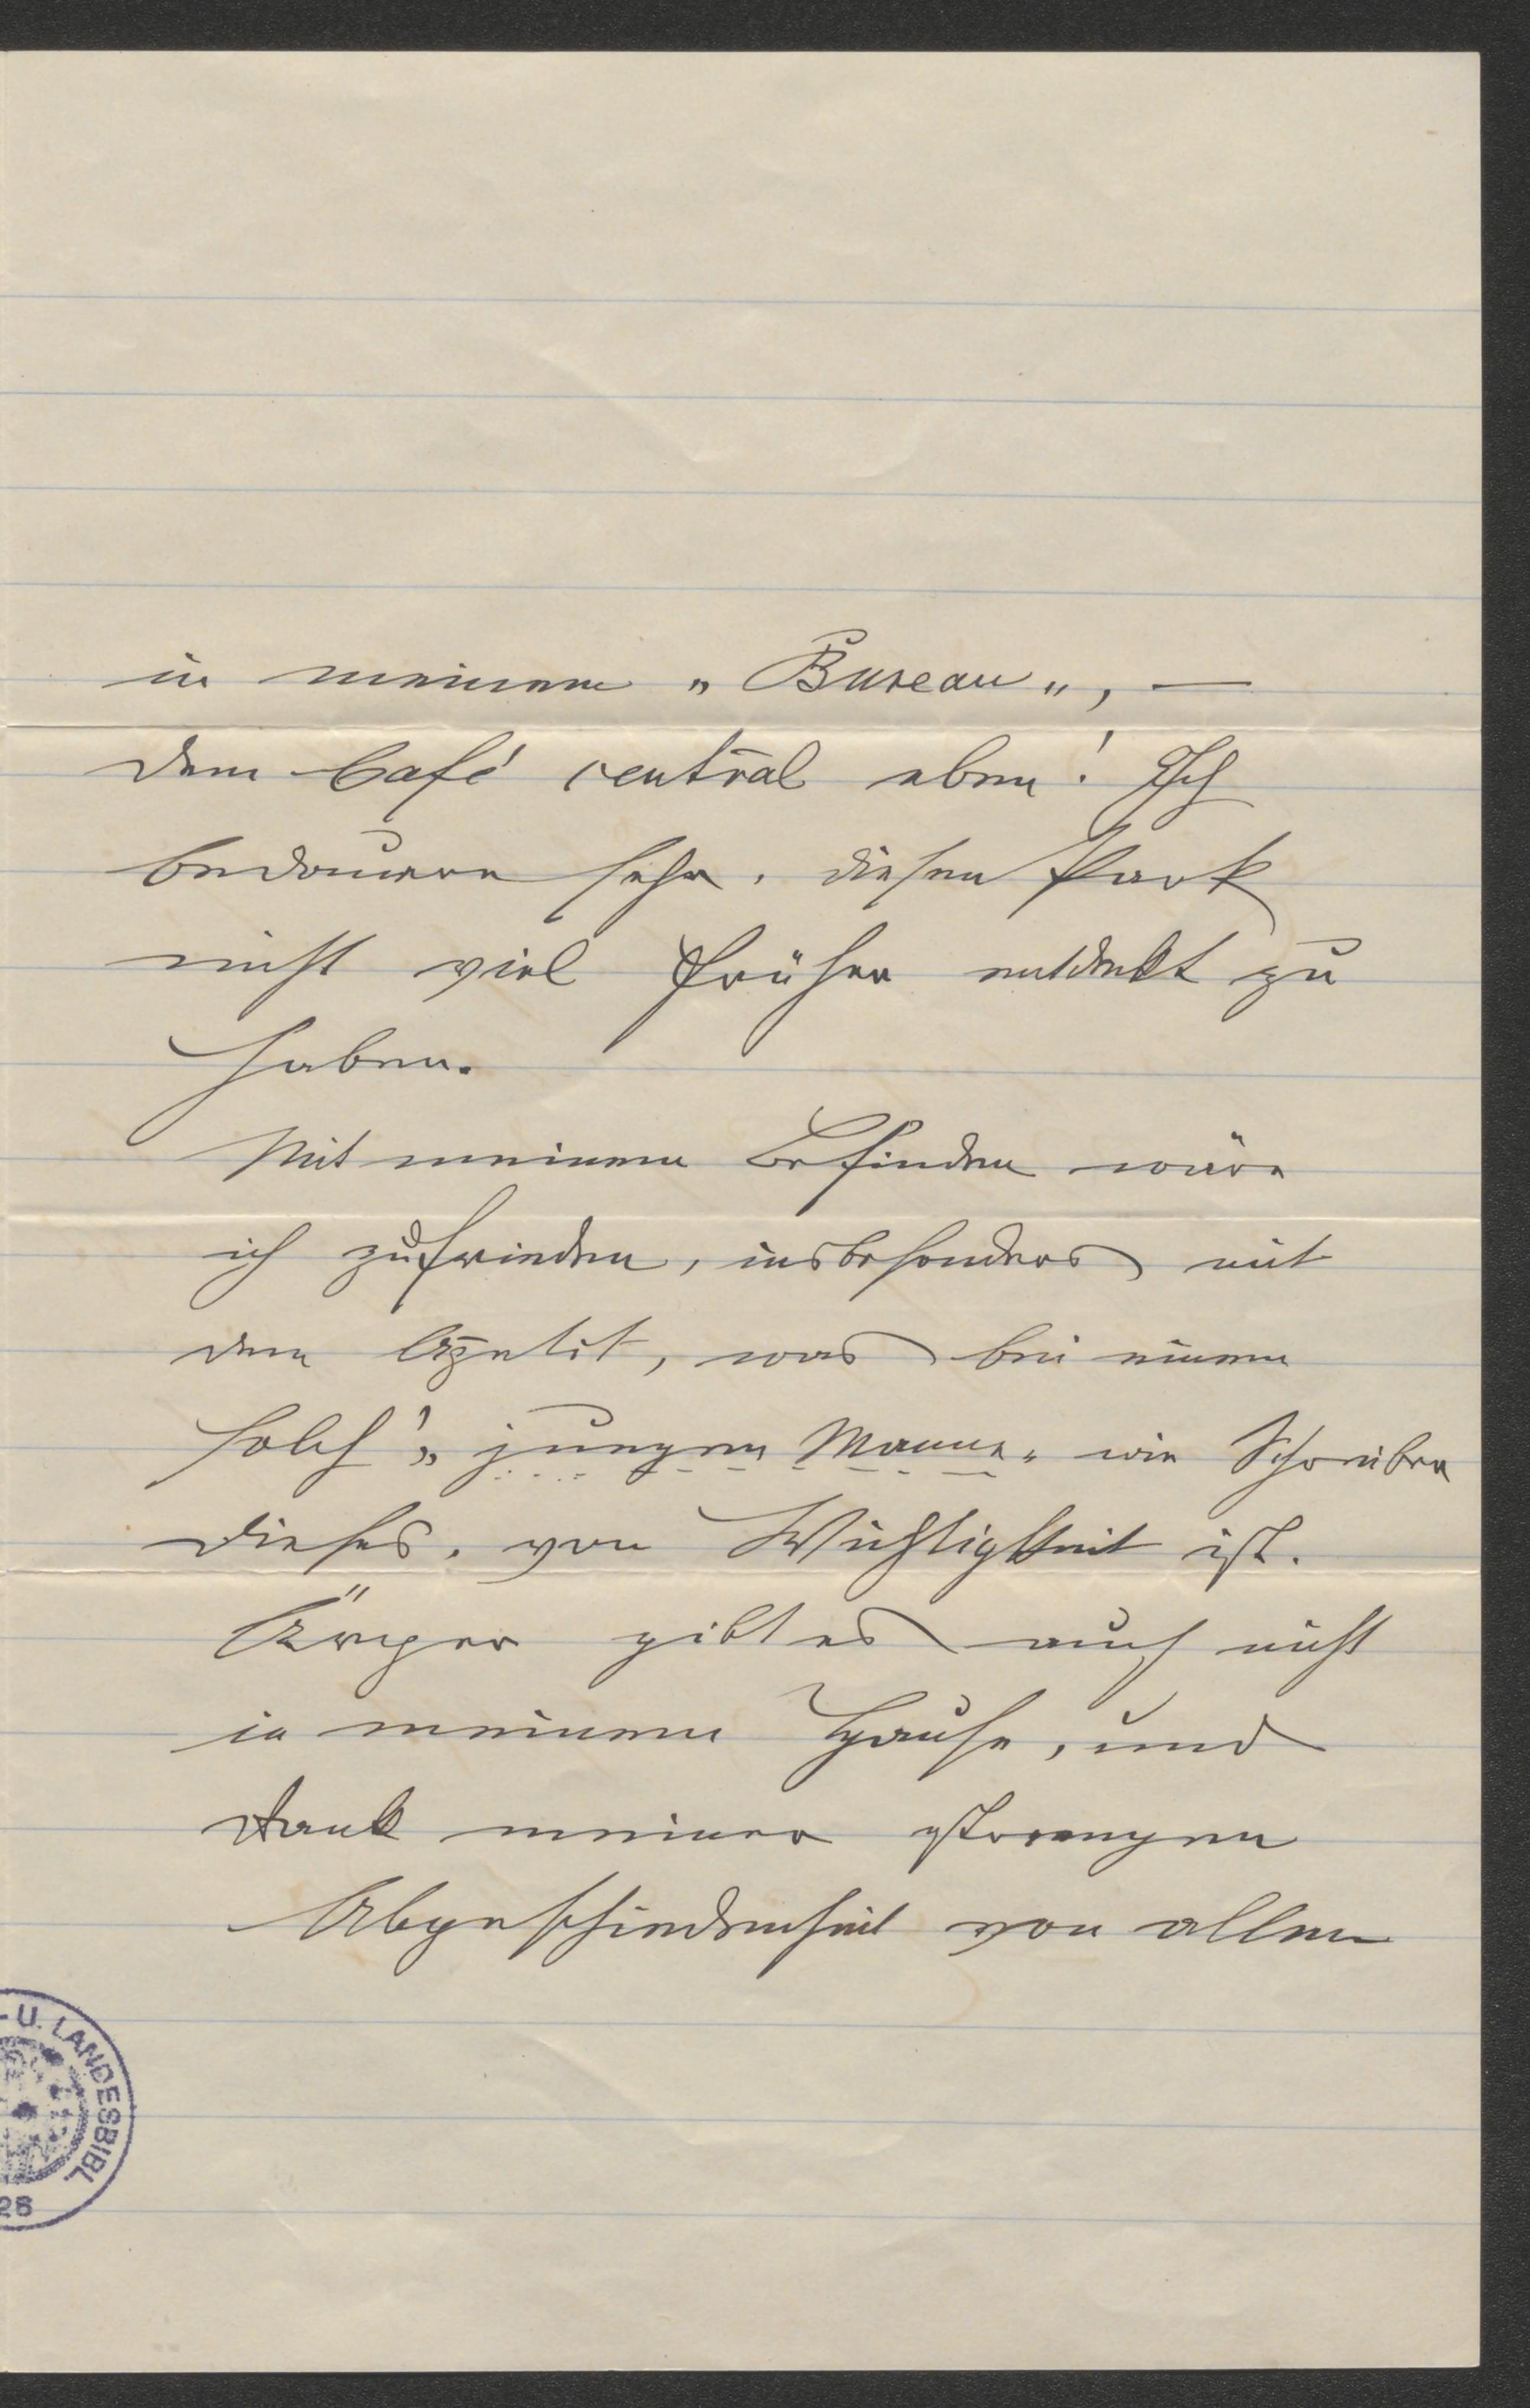 in meinem „Bureau", —
dem Café central eben! Ich
bedauere sehr, diesen Park
nicht viel früher entdekt zu
haben.
Mit meinem Befinden wäre
ich zufrieden, insbesonders mit
dem Apetit, was bei einem
solch' „jungen Manne" wie Schreiber
dieses, von Wichtigkeit ist.
Ärger gibt es auch nicht
in meinem Hause, und
dank meiner strengen
Abgeschiedenheit von allem
-U. LANDESBIBL.
28